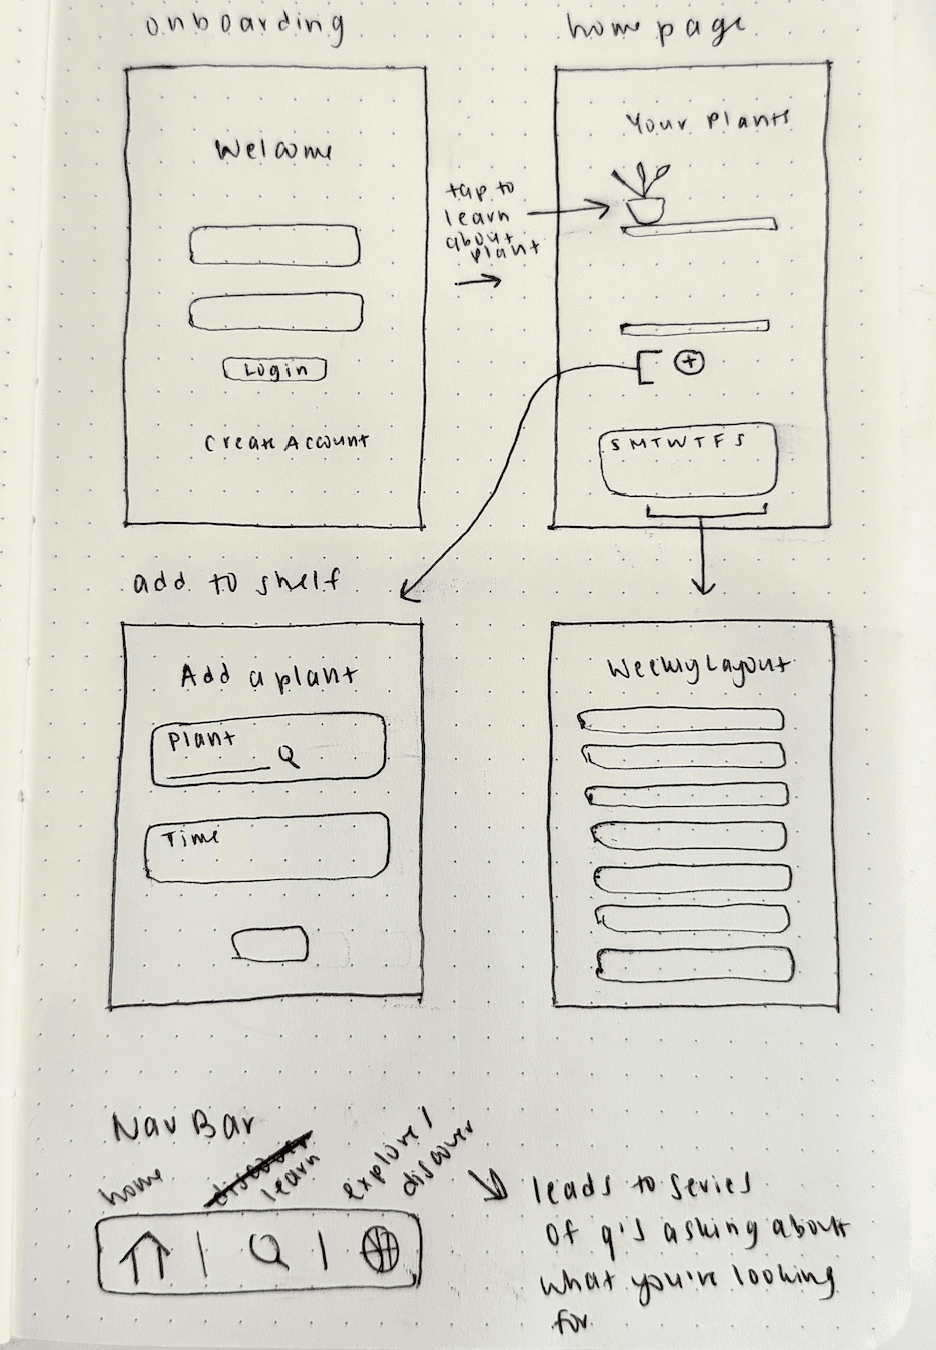 onboarding
home page
Welcome
Login
Create Account
tap to
learn
about
plant
Your Plants
S M T W T F S
add to shelf
Add a plant
Plant
Time
Weekly Layout
Nav Bar
home
discover
learn
explore/
discover
leads to series
of q's asking about
what you're looking
for